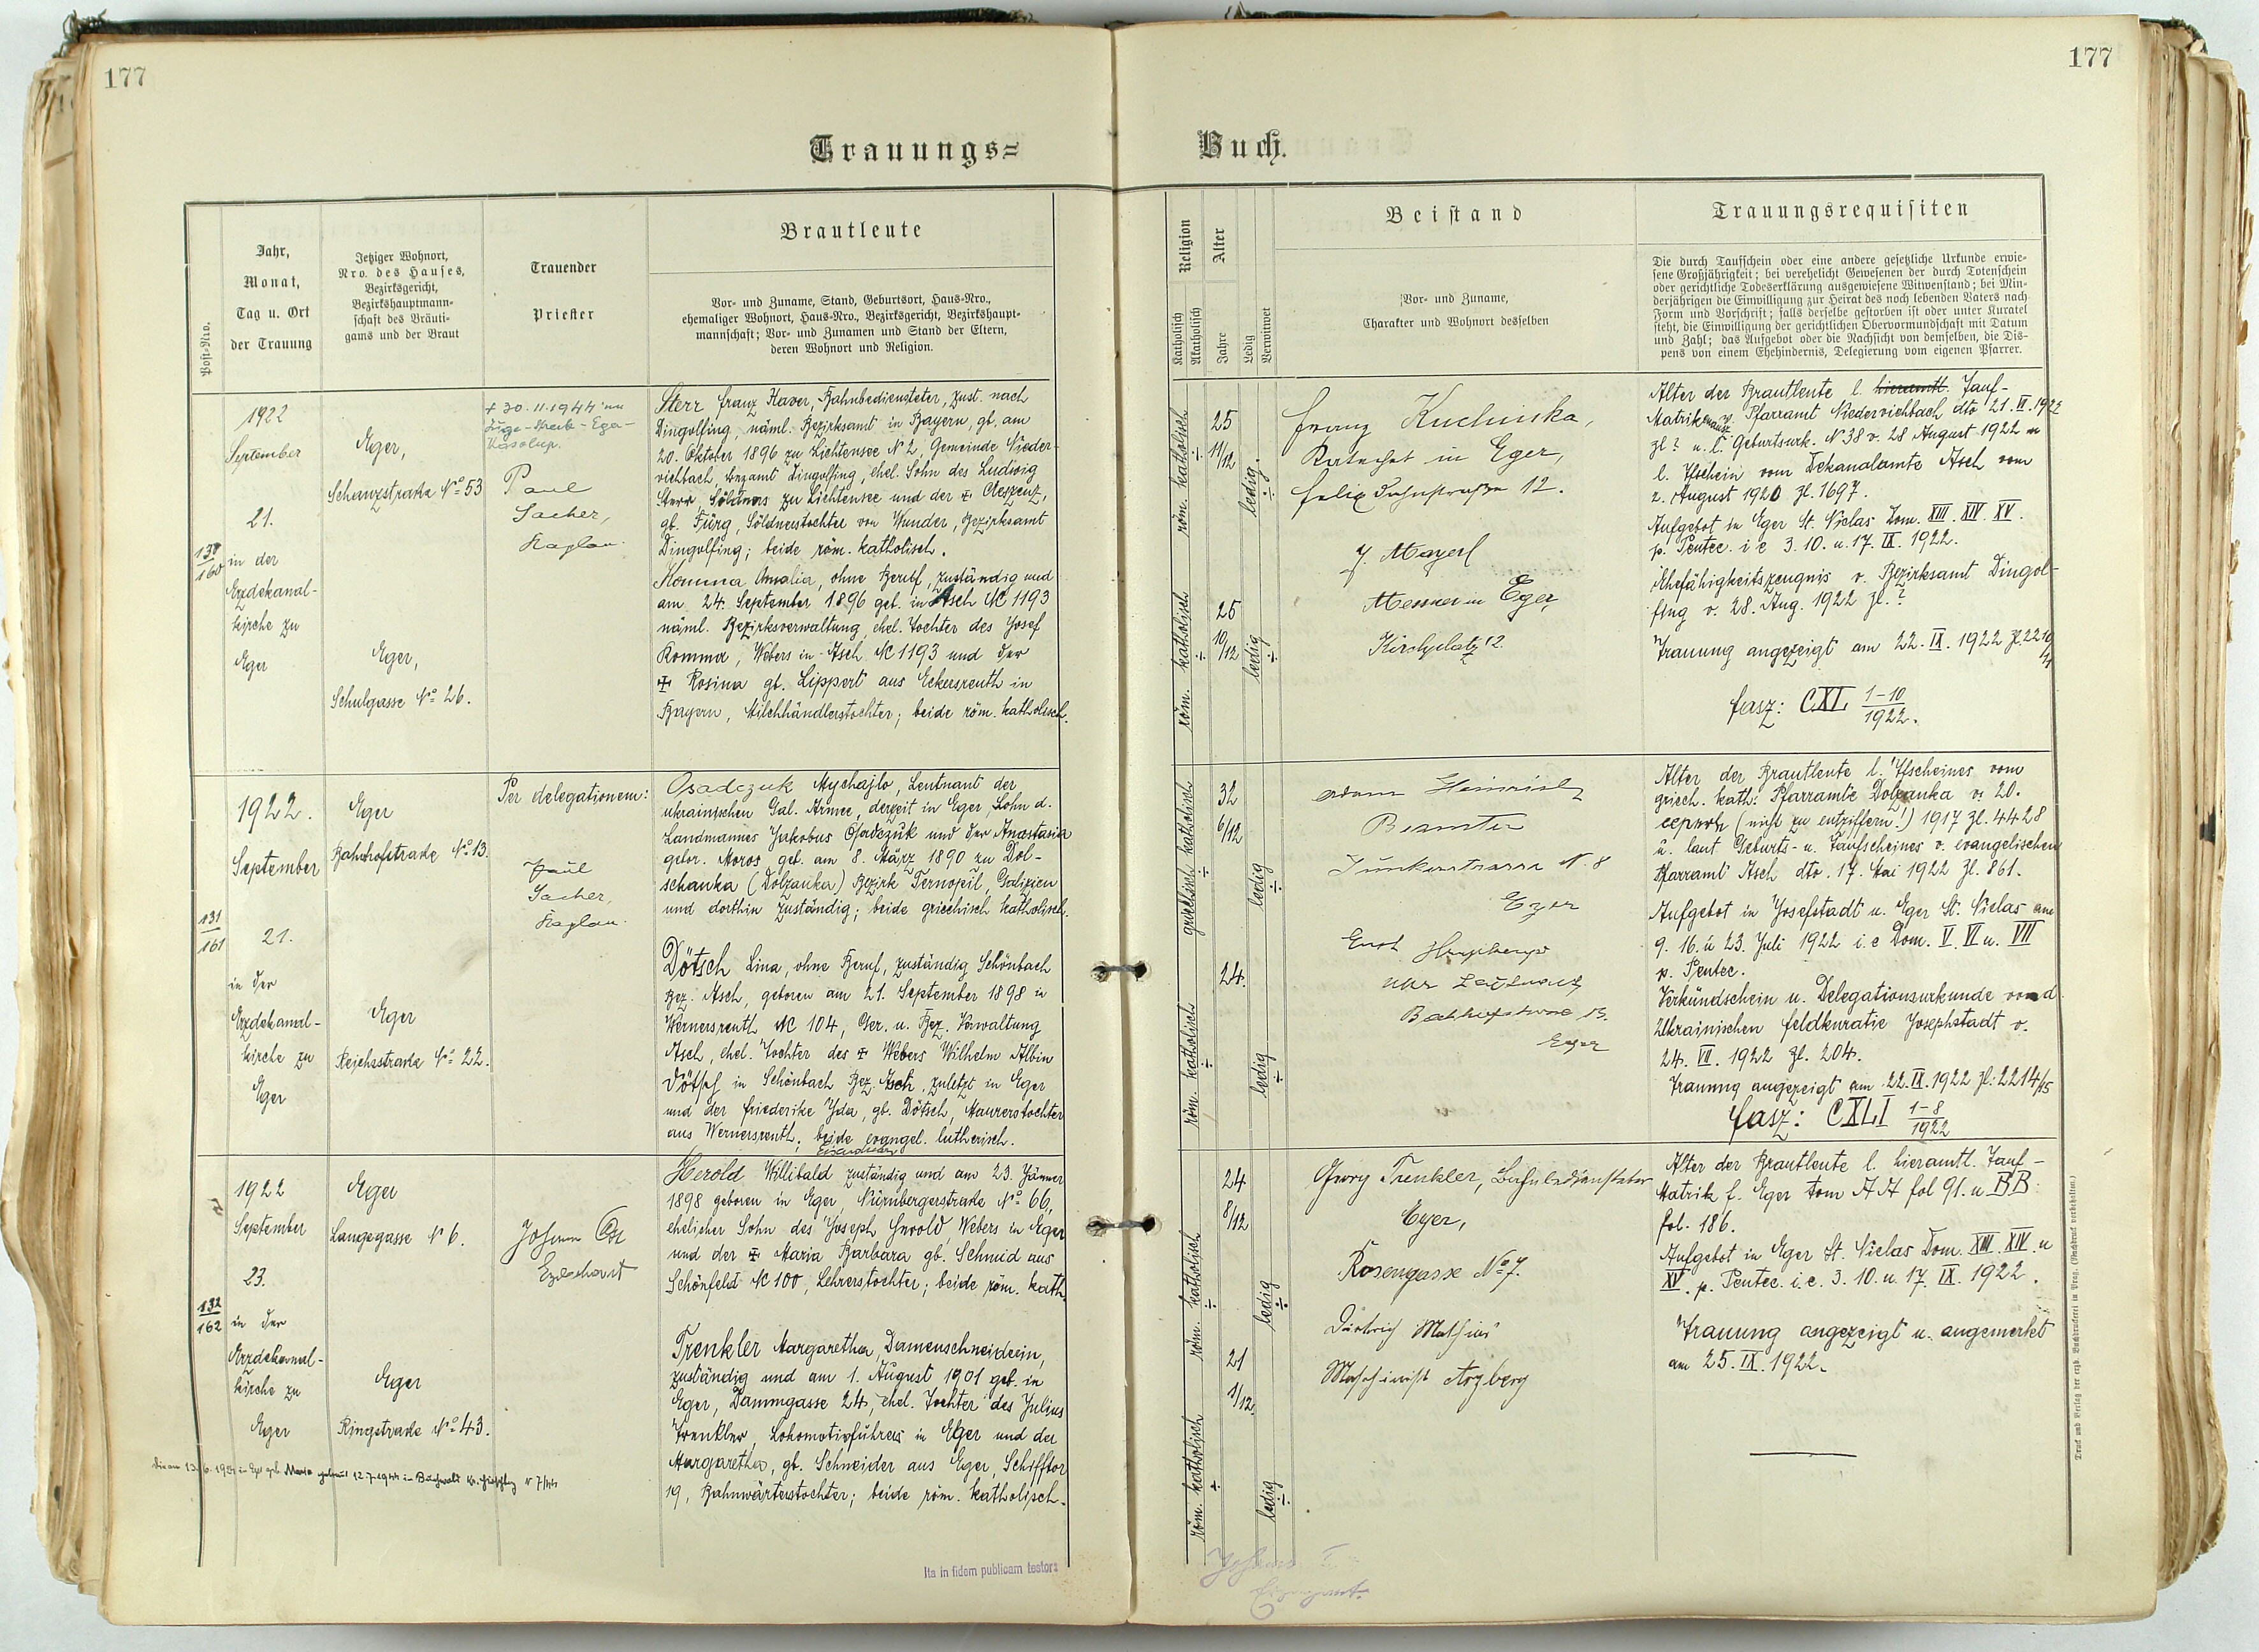 177
177
Trauungs=
Buch.
Post-Nro.
Jahr,
Monat,
Tag u. Ort
der Trauung
Jetziger Wohnort,
Nro. des Hauses,
Bezirksgericht,
Bezirkshauptmann-
schaft des Bräuti-
gams und der Braut
Trauender
Priester
Brautleute
Vor- und Zuname, Stand, Geburtsort, Haus-Nro.,
ehemaliger Wohnort, Haus-Nro., Bezirksgericht, Bezirkshaupt-
mannschaft; Vor- und Zunamen und Stand der Eltern,
deren Wohnort und Religion.
Religion
Katholisch
Akatholisch
Alter
Jahre
Ledig
Verwitwet
Beistand
Vor- und Zuname,
Charakter und Wohnort desselben
Trauungsrequisiten
Die durch Taufschein oder eine andere gesetzliche Urkunde erwie-
sene Großjährigkeit; bei verehelicht Gewesenen der durch Totenschein
oder gerichtliche Todeserklärung ausgewiesene Witwenstand; bei Min-
derjährigen die Einwilligung zur Heirat des noch lebenden Vaters nach
Form und Vorschrift; falls derselbe gestorben ist oder unter Kuratel
steht, die Einwilligung der gerichtlichen Obervormundschaft mit Datum
und Zahl; das Aufgebot oder die Nachsicht von demselben, die Dis-
pens von einem Ehehindernis, Delegierung vom eigenen Pfarrer.
130
160
1922
September
21.
in der
Erzdekanal-
kirche zu
Eger
Eger,
Schanzstraße No 53
Eger,
Schulgasse No 26.
+ 30.11.1944 im
Paul
Sacher,
Kaplan.
Sterr Franz Xaver, Bahnbediensteter, zust. nach
Dingolfing, näml. Bezirksamt in Bayern, gb. am
20. Oktober 1896 zu Lichtensee No 2, Gemeinde Nieder-
viehbach, Bezamt Dingolfing, ehel. Sohn des Ludwig
Sterr, Söldners zu Lichtensee und der + Creszenz,
gb. Fürg, Söldnerstochter von Wunder, Bezirksamt
Dingolfing; beide röm. katholisch.
Komma Amalia, ohne Beruf, zuständig und
am 24. September 1896 geb. in Asch NC 1193
näml. Bezirksverwaltung, ehel. Tochter des Josef
Komma, Webers in Asch NC 1193 und der
+ Rosina gb. Lippert aus Eckersreuth in
Bayern, Milchhändlerstochter; beide röm. katholisch.
röm. katholisch
25
11/12
ledig
röm. katholisch
25
10/12
ledig
Franz Kuchinka,
in Eger,
12.
J. Mayerl
Messner in Eger,
Kirchplatz 12.
Alter der Brautleute l. hieramtl. Tauf-
Matrik Pfarramt Niederviehbach dto 21. II. 1922
zl? u. l. Geburtsurk. No 38 v. 28 August 1922 u
l. Tfschein vom Dekanalamte Asch vom
2. August 1920 zl. 1697.
Aufgebot in Eger St. Niclas Dom. XIII. XIV. XV.
p. Pentec. i e 3. 10. u. 17. IX. 1922.
Ehefähigkeitszeugnis v. Bezirksamt Dingol-
fing v. 28. Aug. 1922 zl. ?
Trauung angezeigt am 22. IX. 1922 zl. 2210/11
fasz: CXL 1-10
1922.
131
161
1922.
September
21.
in der
Erzdekanal-
kirche zu
Eger
Eger
Bahnhofstraße No 13.
Eger
Reichsstraße No 22.
Per delegationem:
Paul
Sacher,
Kaplan.
Osadczuk Mychajlo, Leutnant der
ukrainischen Gal. Armee, derzeit in Eger, Sohn d.
Landmannes Jakobus Osadczuk und der Anastasia
gebor. Moros, geb. am 8. März 1890 zu Dol-
schanka (Dolzanka) Bezirk Ternopil, Galizien
und dorthin zuständig; beide griechisch katholisch.
Dötsch Lina, ohne Beruf, zuständig Schönbach
Bez. Asch, geboren am 21. September 1898 in
Wernersreuth NC 104, Ger. u. Bez. Verwaltung
Asch, ehel. Tochter des + Webers Wilhelm Albin
Dötsch in Schönbach Bez. Asch, zuletzt in Eger
und der Friederike Ida, gb. Dötsch, Maurerstochter
aus Wernersreuth; beide evangel. lutherisch.
griechisch katholisch
32
6/12
ledig
röm. katholisch
24.
ledig
Adam Heinrich
Beamter
Junkerstrasse N. 8
Eger
Bahnhofstrasse 13.
Eger
Alter der Brautleute l. Tfscheines vom
griech. kath. Pfarramte Dolzanka v. 20.
(nicht zu entziffern!) 1917 zl. 4428
u. laut Geburts- u. Taufscheines v. evangelischen
Pfarramt Asch dto. 17. Mai 1922 zl. 861.
Aufgebot in Josefstadt u. Eger St. Niclas am
9. 16. u 23. Juli 1922 i. e Dom. V. VI u. VII
p. Pentec.
Verkündschein u. Delegationsurkunde von d.
Ukrainischen Feldkuratie Josephstadt v.
24. VII. 1922 zl. 204.
Trauung angezeigt am 22. IX. 1922 zl: 2214/15
fasz: CXLI 1-8
1922
132
162
1922
September
23.
in der
Erzdekanal-
kirche zu
Eger
Eger
Langegasse N 6.
Eger
Ringstraße No 43.
Johann
Erzdechant
Herold Willibald zuständig und am 23. Jänner
1898 geboren in Eger, Nürnbergerstraße No 66,
ehelicher Sohn des Joseph Herold, Webers in Eger
und der + Maria Barbara gb. Schmid aus
Schönfeld NC 100, Lehrerstochter; beide röm. kath.
Trenkler Margaretha, Damenschneiderin,
zuständig und am 1. August 1901 geb. in
Eger, Dammgasse 24, ehel. Tochter des Julius
Trenkler, Lokomotivführers in Eger und der
Margaretha, gb. Schneider aus Eger, Schifftor
19, Bahnwärterstochter; beide röm. katholisch.
röm. katholisch
24
8/12
ledig
röm. katholisch
21
1/12.
ledig
Georg Trenkler, Bahnbediensteter
Eger,
Rosengasse No 7.
Mathias
Maschinist Arzberg
Alter der Brautleute l. hieramtl. Tauf-
Matrik f. Eger tom AA fol 91. u BB
fol. 186.
Aufgebot in Eger St. Niclas Dom. XIII. XIV. u
XV. p. Pentec. i. e. 3. 10. u. 17. IX. 1922.
Trauung angezeigt u. angemerkt
am 25. IX. 1922.
Ita in fidem publicam testor:
Druck und Verlag der erzb. Buchdruckerei in Prag. (Nachdruck verboten.)